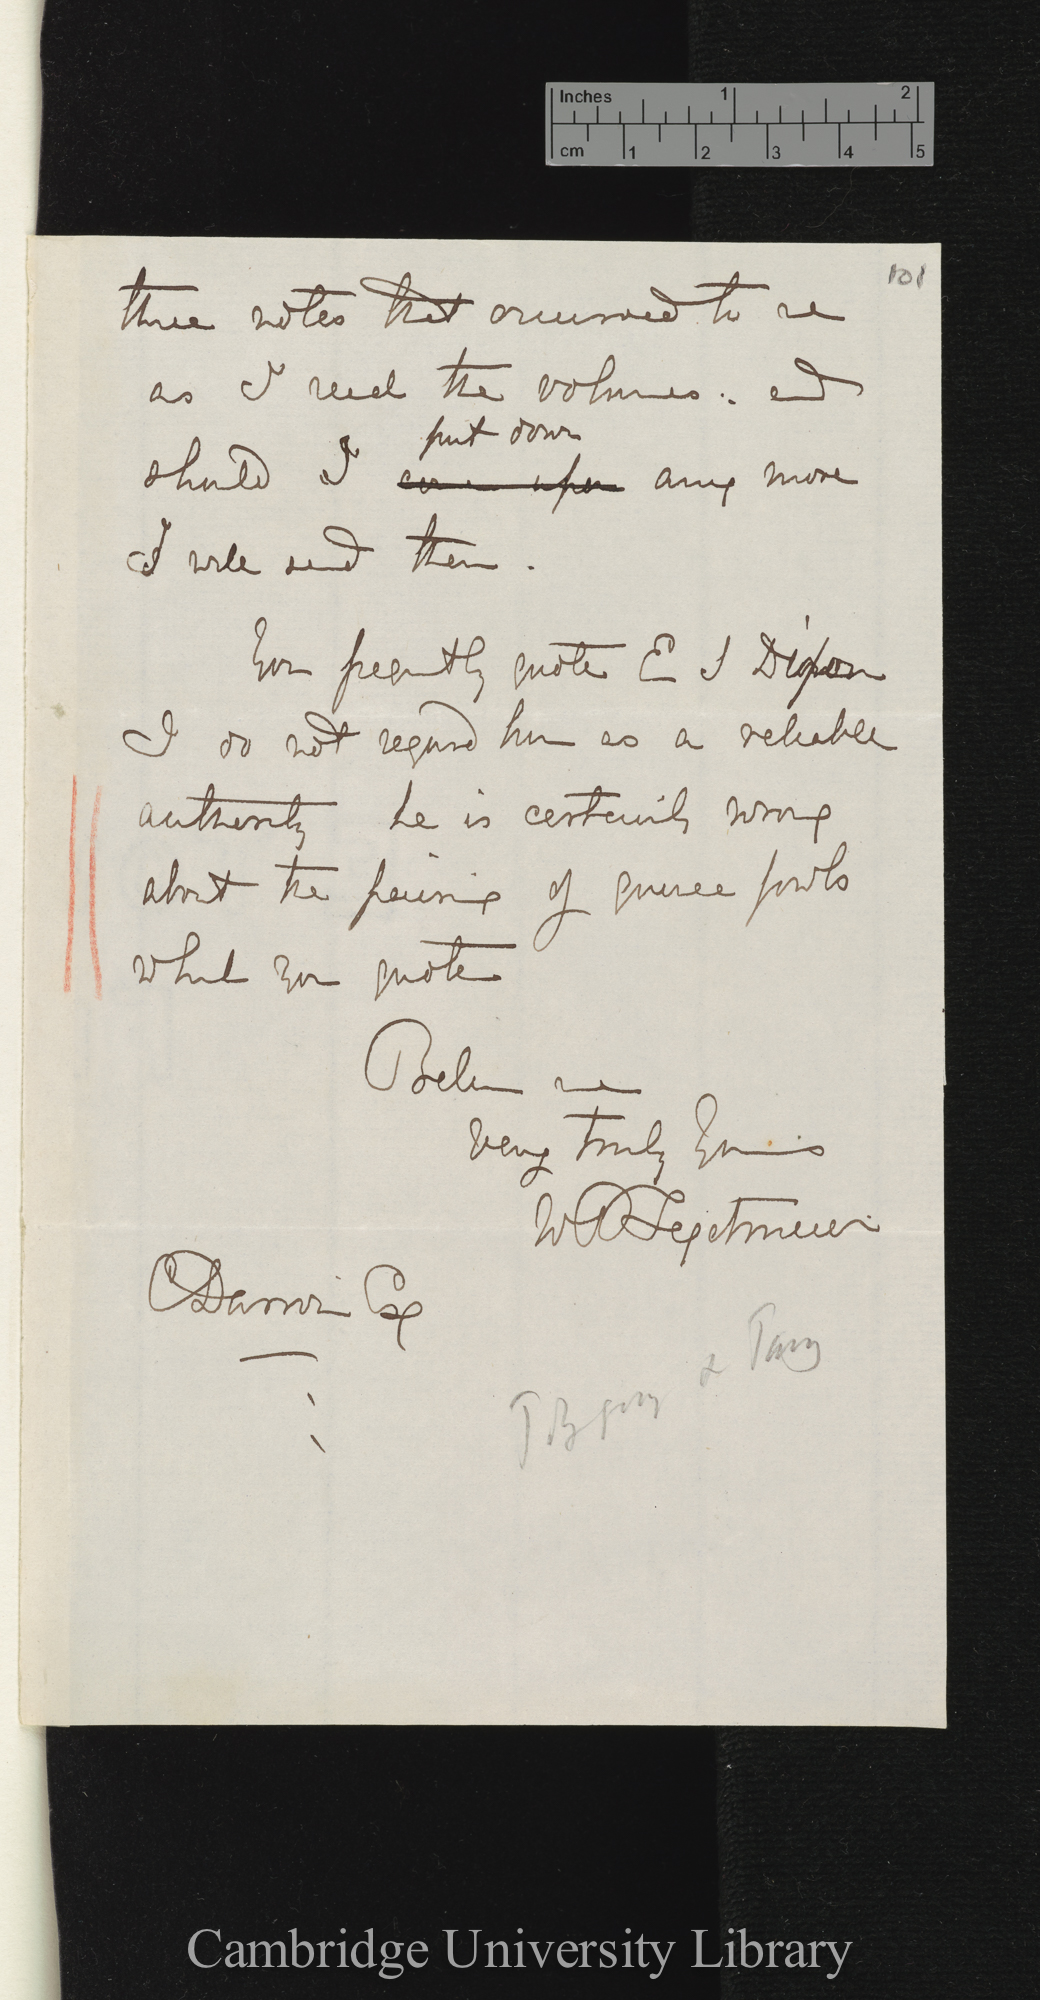 Inches 1 2
cm 1 2 3 4 5
101
three notes that occurred to me
as I read the volumes. and
put down
should I come upon any more
I will send them.
You freqently quote E S Dixon
I do not regard him as a reliable
authority he is certainly wrong
about the pairing of guinea fowls
which you quote
Believe me
Very truly Yours
W B Tegetmeier
C Darwin Esq
& Tang
Cambridge University Library